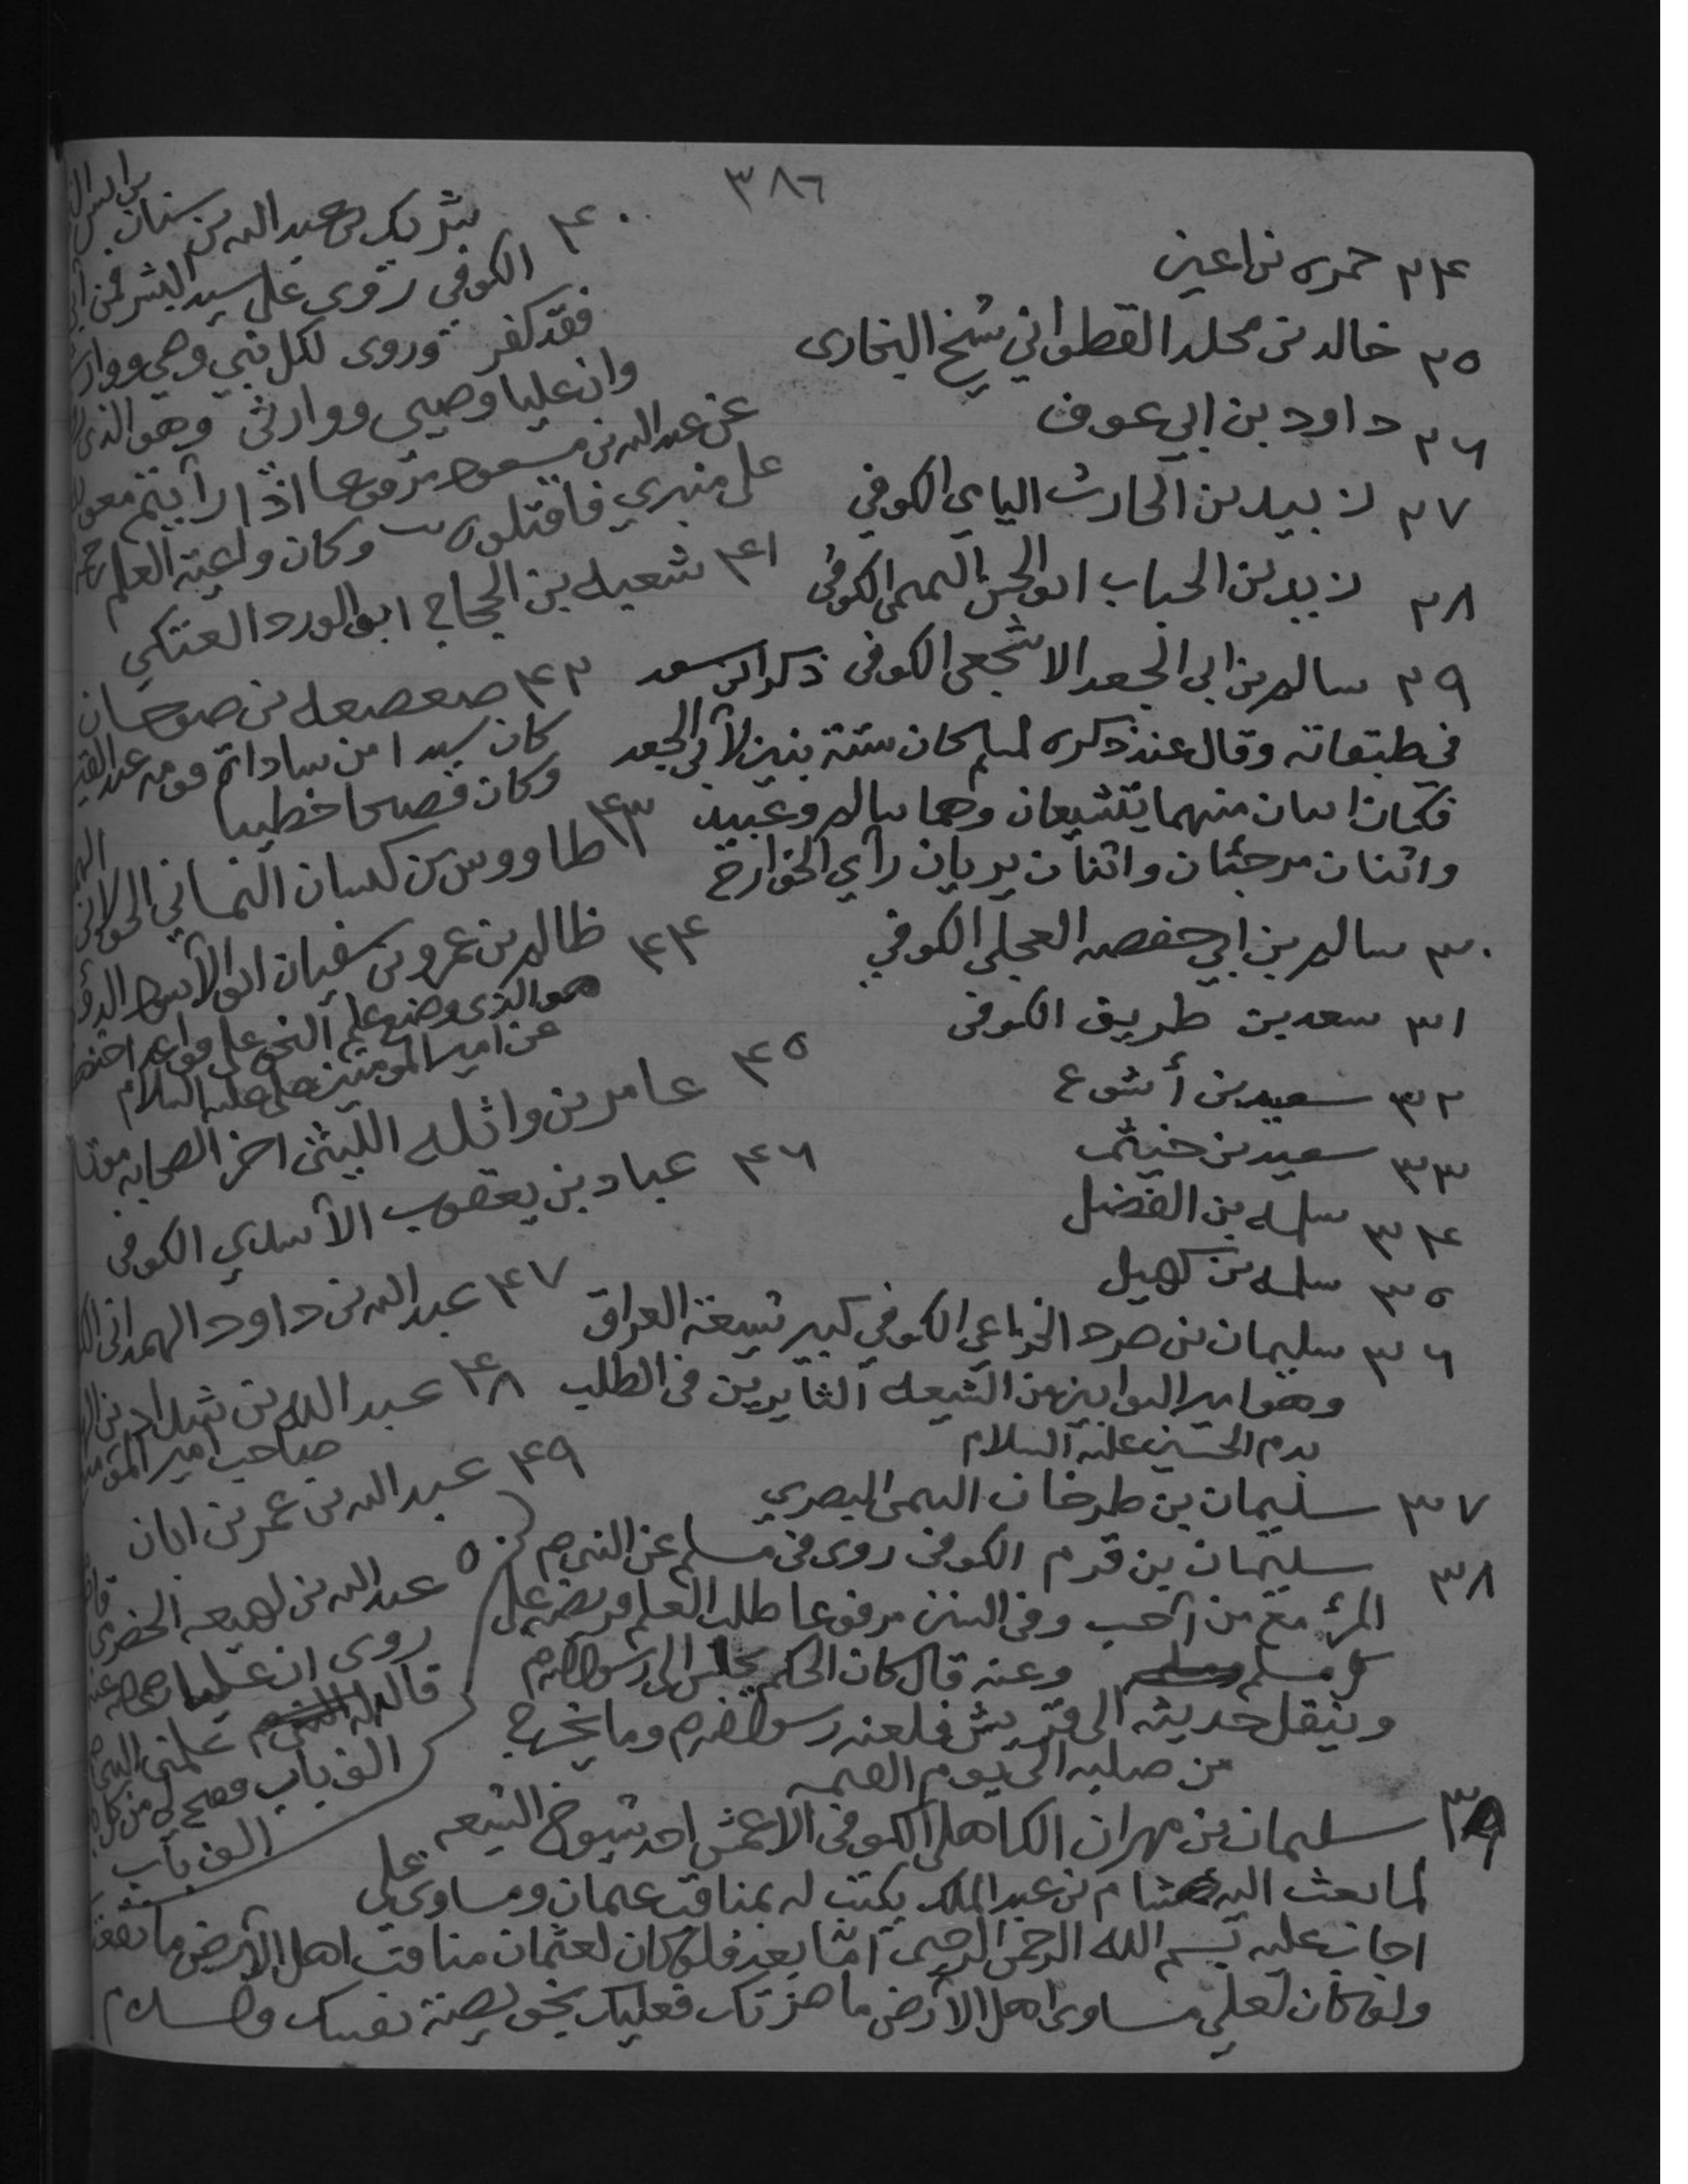 ٣٨٦
٢٤ حمره بن اعين
٢٥ خالد بن مخلد القطواني شيخ البخاري
٢٦ داود بن ابي عوف
٢٧ زبيد بن الحارث اليامي الكوفي
٢٨ زيد بن الحباب ابو الحسن التميمي الكوفي
٢٩ سالم بن ابي الجعد الاشجعي الكوفي ذكر ابن سعد
في طبقاته وقال عند ذكره لسالم كان ستة بنين لأبي الجعد
فكان اثنان منهما يتشيعان وهما سالم وعبيد
واثنان مرجئان واثنان يريان رأي الخوارج
٣٠ سالم بن ابي حفصه العجلي الكوفي
٣١ سعد بن طريف الكوفي
٣٢ سعيد بن أشوع
٣٣ سعيد بن خيثم
٣٤ سلمه بن الفضل
٣٥ سلمه بن كهيل
٣٦ سليمان بن صرد الخزاعي الكوفي كبير شيعة العراق
وهو امير التوابين من الشيعه الثايرين في الطلب
بدم الحسين عليه السلام
٣٧ سليمان بن طرخان التيمي البصري
٣٨ سليمان بن قرم الكوفي روى في مسلم عن النبي ص
المرؤ مع من أحب وفي السنن مرفوعا طلب العلم فريضه على
كل مسلم وعنه قال كان الحكم يجلس الى رسول الله ص
وينقل حديثه الى قريش فلعنه رسول الله ص وما يخرج
من صلبه الى يوم القيمه
٣٩ سليمان بن مهران الكاهلي الكوفي الاعمش احد شيوخ الشيعه
لما بعث اليه هشام بن عبد الملك يكتب له بمناقب عثمان ومساوي علي
اجاب عليه بسم الله الرحمن الرحيم أمّا بعد فلو كان لعثمان مناقب اهل الأرض ما نفعتك
ولو كان لعلي مساوى اهل الأرض ما ضرتك فعليك بخويصة نفسك والسلام
٤٠ شريك بن عبد الله بن سنان بن انس
الكوفي روى علي سيد البشر فمن
فقد كفر وروى لكل نبي وصي ووارث
وان عليا وصيي ووارثي وهو الذي
عن عبد الله بن مسعود مرفوعا اذا رأيتم
على منبري فاقتلوه وكان العلم
٤١ شعبه بن الحجاج ابو الورد العتكي
٤٢ صعصعه بن صوحان
كان سيدا من سادات قومه عبد القيس
وكان فصيحا خطيبا
٤٣ طاووس بن كيسان الخولاني
٤٤ ظالم بن عمرو بن سفيان ابو الأسود
هو الذي وضع علم النحو على قواعد
عن امير المؤمنين علي عليه السلام
٤٥ عامر بن واثله الليثي اخر الصحابه موتا
٤٦ عباد بن يعقوب الأسدي الكوفي
٤٧ عبد الله بن داود الهمداني
٤٨ عبد الله بن شداد بن
صاحب امير المؤمنين
٤٩ عبد الله بن عمر بن ابان
٥٠ عبد الله بن لهيعه الحضرمي
روى ان عليا
قال علمني النبي ص
الف باب
الف باب